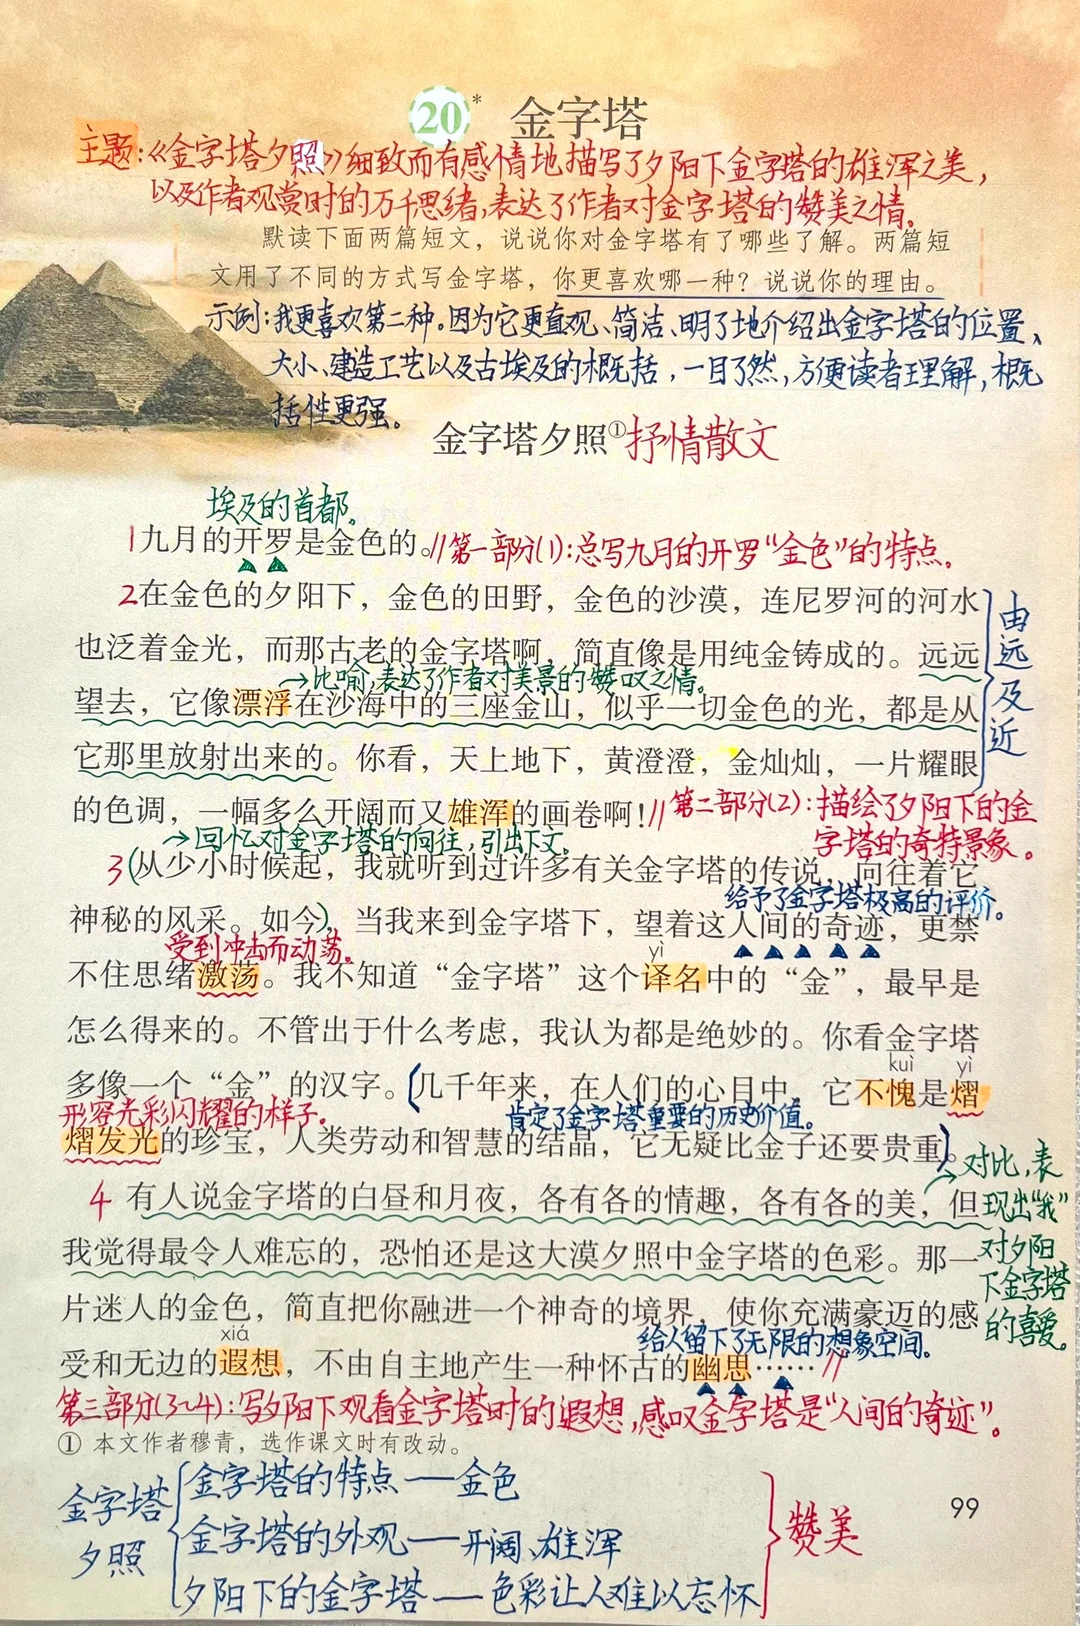 20* 金字塔
主题:《金字塔夕照》细致而有感情地描写了夕阳下金字塔的雄浑之美,
以及作者观赏时的万千思绪,表达了作者对金字塔的赞美之情。
默读下面两篇短文，说说你对金字塔有了哪些了解。两篇短
文用了不同的方式写金字塔，你更喜欢哪一种？说说你的理由。
示例:我更喜欢第二种。因为它更直观、简洁、明了地介绍出金字塔的位置、
大小、建造工艺以及古埃及的概括,一目了然,方便读者理解,概
括性更强。
金字塔夕照① 抒情散文
埃及的首都。
1九月的开罗是金色的。//第一部分(1):总写九月的开罗“金色”的特点。
2在金色的夕阳下，金色的田野，金色的沙漠，连尼罗河的河水
也泛着金光，而那古老的金字塔啊，简直像是用纯金铸成的。远远
→比喻,表达了作者对美景的赞叹之情。
望去，它像漂浮在沙海中的三座金山，似乎一切金色的光，都是从
它那里放射出来的。你看，天上地下，黄澄澄，金灿灿，一片耀眼
由远及近
的色调，一幅多么开阔而又雄浑的画卷啊！//第二部分(2):描绘了夕阳下的金
字塔的奇特景象。
→回忆对金字塔的向往,引出下文。
3(从少小时候起，我就听到过许多有关金字塔的传说，向往着它
给予了金字塔极高的评价。
神秘的风采。如今)，当我来到金字塔下，望着这人间的奇迹，更禁
受到冲击而动荡。
yì
不住思绪激荡。我不知道“金字塔”这个译名中的“金”，最早是
怎么得来的。不管出于什么考虑，我认为都是绝妙的。你看金字塔
kuì yì
多像一个“金”的汉字。(几千年来，在人们的心目中，它不愧是熠
形容光彩闪耀的样子。
肯定了金字塔重要的历史价值。
熠发光的珍宝，人类劳动和智慧的结晶，它无疑比金子还要贵重)。
→对比,表
现出“我”
对夕阳
下金字塔
的喜爱。
4 有人说金字塔的白昼和月夜，各有各的情趣，各有各的美，但
我觉得最令人难忘的，恐怕还是这大漠夕照中金字塔的色彩。那一
片迷人的金色，简直把你融进一个神奇的境界，使你充满豪迈的感
xiá
给人留下了无限的想象空间。
受和无边的遐想，不由自主地产生一种怀古的幽思……//
第三部分(3~4):写夕阳下观看金字塔时的遐想,感叹金字塔是“人间的奇迹”。
① 本文作者穆青，选作课文时有改动。
金字塔
夕照
金字塔的特点——金色
金字塔的外观——开阔、雄浑
夕阳下的金字塔——色彩让人难以忘怀
赞美
99